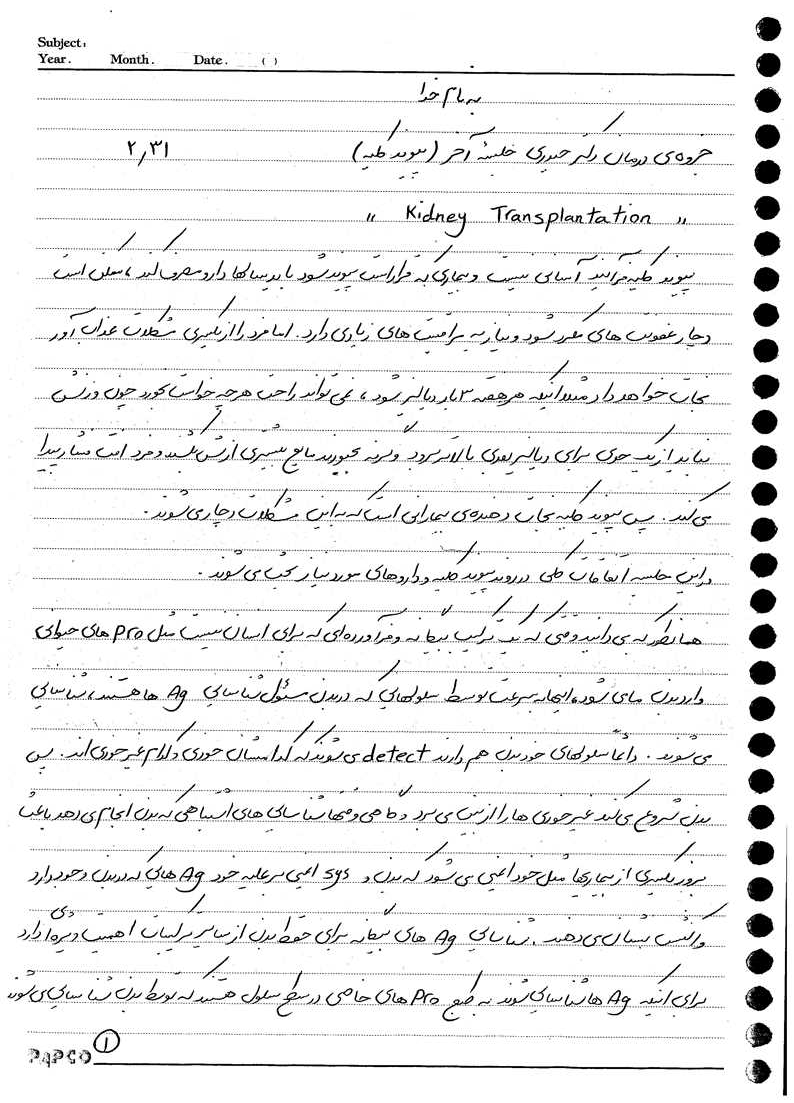 Subject:
Year. Month. Date. ( )
به نام خدا
جزوه‌ی درمان دکتر حیدری جلسهٔ آخر (پیوند کلیه) ۲,۳۱
" Kidney Transplantation "
پیوند کلیه فرآیند آسانی نیست و بیماری که قرار است پیوند شود باید سالها دارو مصرف کند، ممکن است
دچار عفونت های مکرر شود و نیاز به مراقبت های زیادی دارد. اما فرد را از یکسری مشکلات عذاب آور
نجات خواهد داد مثلا اینکه هر هفته ۳ بار دیالیز شود، نمی تواند راحت هر چه خواست بخورد چون وزنش
نباید از یک حدی برای دیالیز بعدی بالاتر برود وگرنه مجبورند مایع بیشتری ازش بکشند و فرد افت فشار پیدا
می کند. پس پیوند کلیه نجات دهنده‌ی بیمارانی است که به این مشکلات دچار می شوند.
در این جلسه اتفاقات کلی در روند پیوند کلیه و داروهای مورد نیاز بحث می شوند.
همانطور که می دانید وقتی که یک ترکیب بیگانه و فرآورده‌ای که برای انسان نیست مثل Pro های حیوانی
وارد بدن ما می شود، اینها به سرعت توسط سلولهایی که در بدن مسئول شناسایی Ag ها هستند، شناسایی
می شوند. دائماً سلولهای خود بدن هم دارند detect می شوند که کدامشان خودی و کدام غیر خودی اند. پس
بدن شروع می کند غیر خودی ها را از بین می برد و گاهی وقتها شناسایی های اشتباهی که بدن انجام می دهد باعث
بروز یکسری از بیماریها مثل خود ایمنی می شود که بدن و sys ایمنی بر علیه خود Ag هایی که در بدن وجود دارد
واکنش نشان می دهند. شناسایی Ag های بیگانه برای حفظ بدن از سایر ترکیبات اهمیت ویژه‌ای دارد
برای اینکه Ag ها شناسایی شوند به طبع Pro های خاصی در سطح سلول هستند که توسط بدن شناسایی می شوند
PAPCO ۱